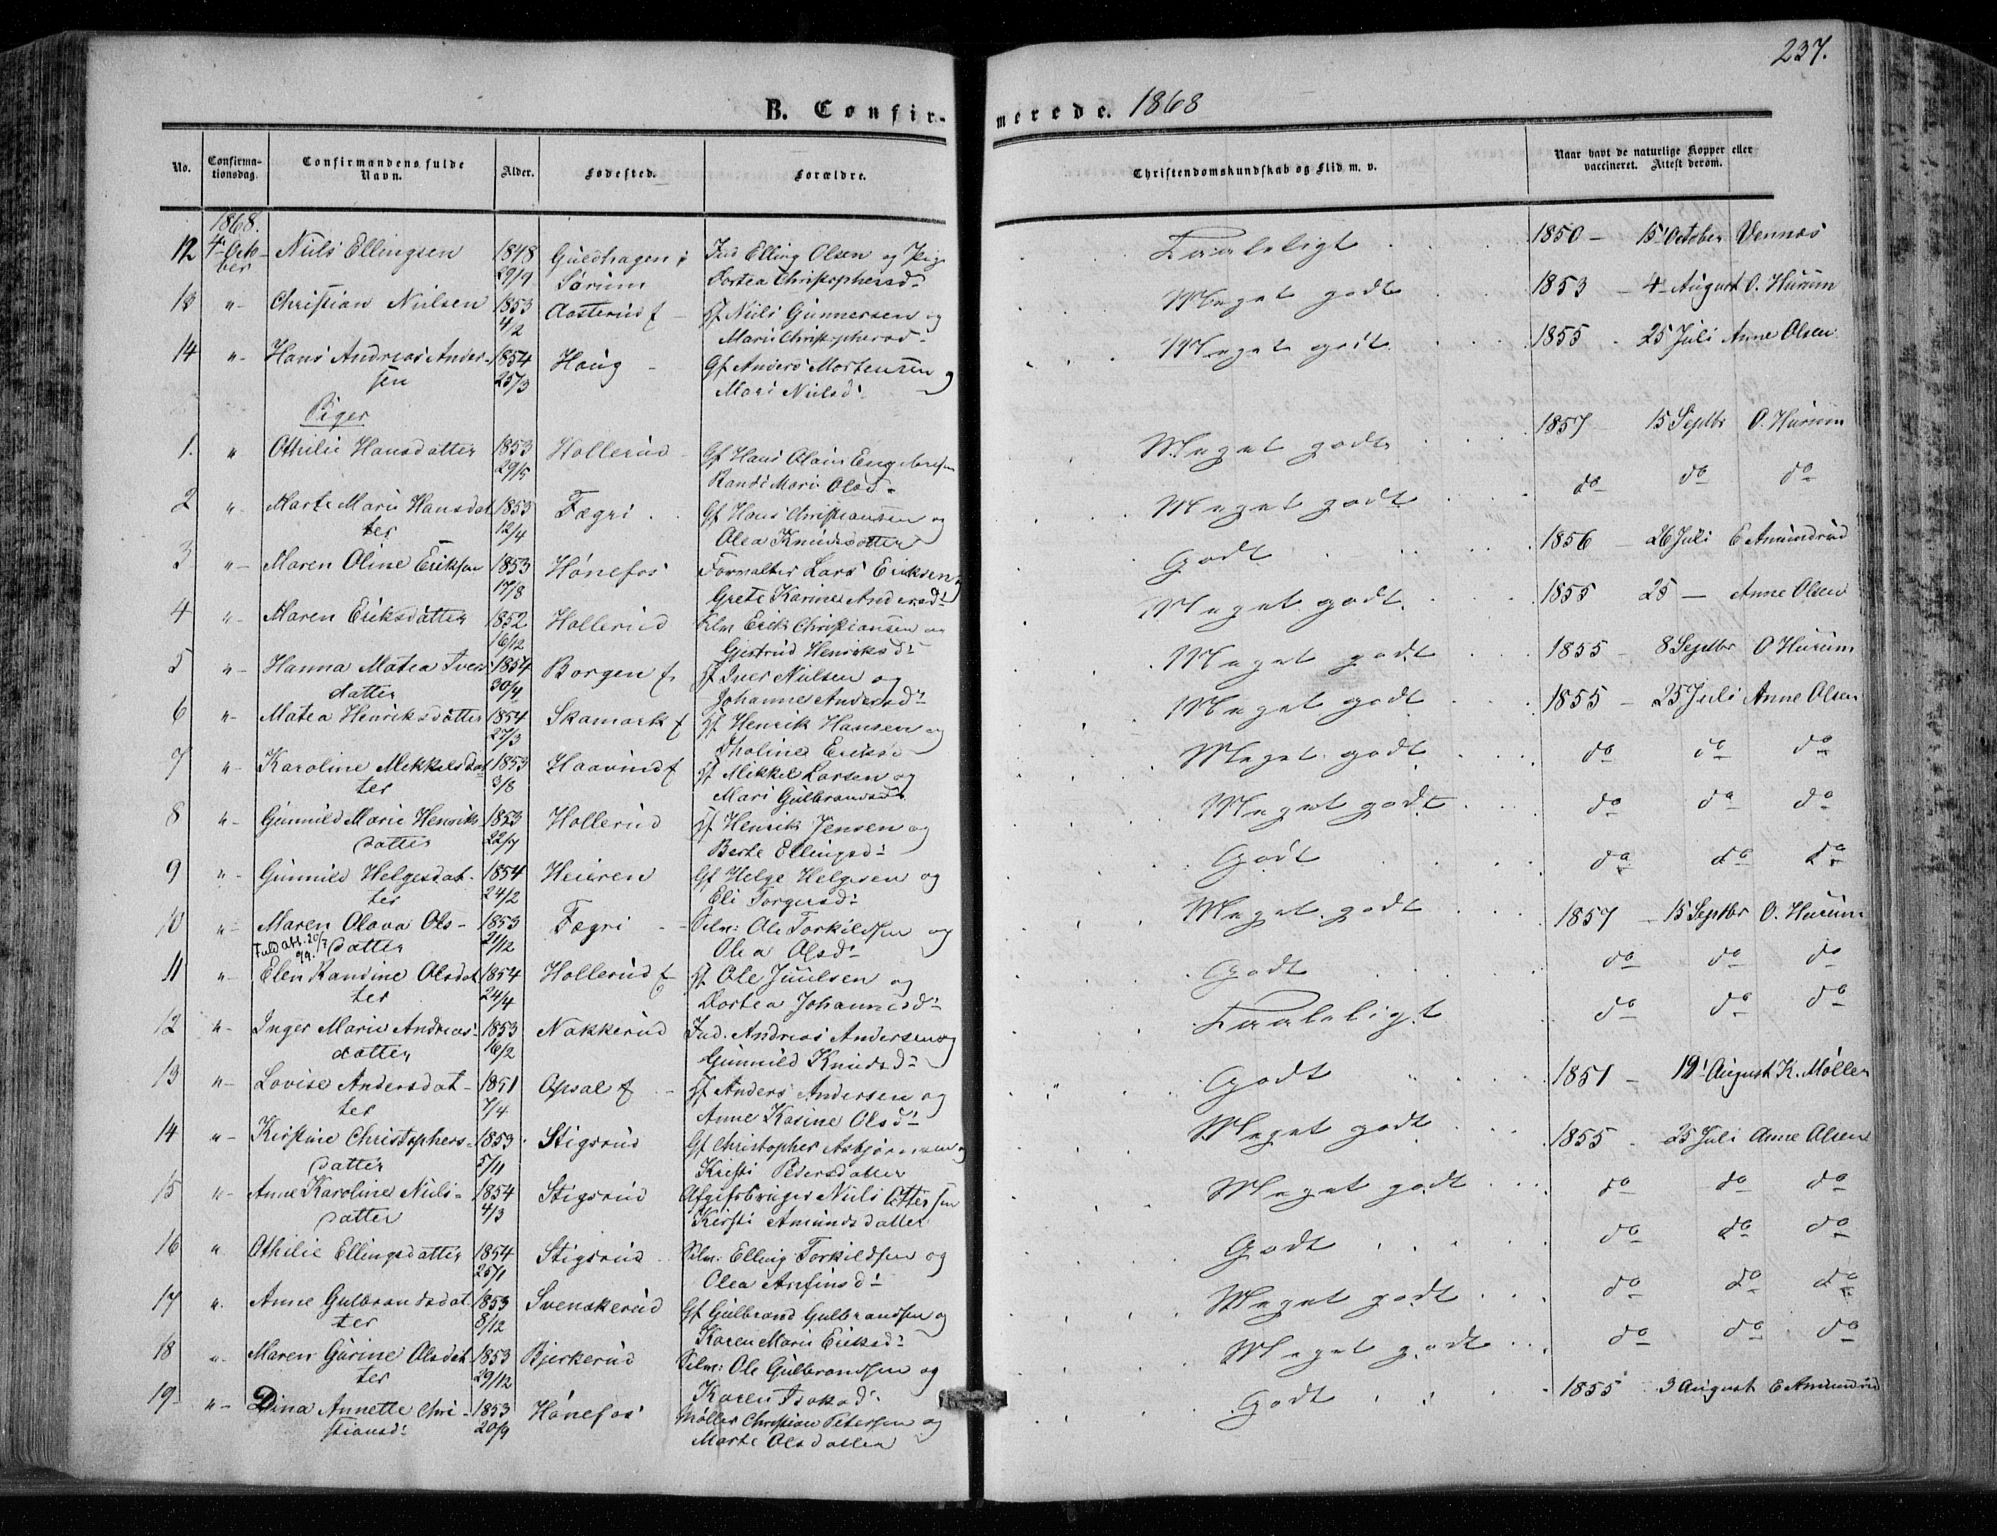 237.
B. Confirmerede. 1868
No. Confirmationsdag. Confirmandens fulde Navn. Alder. Fødested. Forældre. Christendomskundskab og Flid m. v. Naar havt de naturlige Kopper eller vaccineret. Attest derom.
1868.
12 4 October Niels Ellingsen 1848 29/9 Guldhagen i Sørum Inds Elling Olsen og Pig Dortea Christophersd: Taaleligt 1850 - 15 October Vennes
13 " Christian Nielsen 1853 4/2 Aasterud f Hf Niels Gunnersen og Mari Christophersd: Meget godt 1853 - 4 August O. Hurum
14 " Hans Andreas Andersen 1854 25/3 Haug Gf Anders Mortensen og Mari Nielsd: Meget godt 1855 - 25 Juli Anne Olsen
Piger
1. " Othilie Hansdatter 1853 29/5 Hollerud Gf Hans Olain Engebresen Randi Mari Olsd: Meget godt 1857 - 15 Septbr O. Hurum
2 " Marte Marie Hansdatter 1853 12/4 Fægri Gf Hans Christiansen og Olea Knudsdatter Meget godt do do do
3 " Maren Oline Eriksen 1853 17/8 Hønefos Forvalter Lars Eriksen og Grete Karine Andersd: Godt 1856 - 26 Juli E Amundrud
4 " Maren Eriksdatter 1852 16/12 Hollerud Selv Erik Christiansen og Gjertrud Henriksd: Meget godt 1855 25 - Anne Olsen
5 " Hanna Matea Iversdatter 1854 30/4 Borgen f Hf Iver Nielsen og Johanne Andersd: Meget godt 1855 - 8 Septbr O Hurum
6 " Matea Henriksdatter 1854 27/3 Skamark f Hf Henrik Hansen og Tholine Eriksd: Meget godt 1855 - 25 Juli Anne Olsen
7 " Karoline Mekkelsdatter 1853 3/8 Haavind f Hf Mikkel Larsen og Mari Gulbrandsd: Meget godt do do do
8 " Gunnild Marie Henriksdatter 1853 22/7 Hollerud Hf Henrik Jensen og Berte Ellingsd: Meget godt do do do
9 " Gunnild Helgesdatter 1854 24/2 Heieren Gf Helge Helgesen og Eli Torgersd: Godt do do do
10 " Maren Olava Olsdatter 1853 21/12 Fægri Selv: Ole Torkildsen og Olea Olsd: Meget godt 1857 - 15 Septbr O. Hurum
11 " Elen Randine Olsdatter 1854 24/4 Hollerud f Hf Ole Juulsen og Dortea Johannesd: Godt do do do
12 " Inger Marie Andreasdatter 1853 16/2 Nakkerud Ind. Andreas Andersen og Gunnild Knudsd: Taaleligt do do do
13 " Lovise Andersdatter 1851 7/4 Opsal f Hf Anders Andersen og Anne Karine Olsd: Godt 1851 - 19 August K. Møller
14 " Kirstine Christophersdatter 1853 5/11 Stigsrud Gf Christopher Asbjørnsen og Kristi Pedersdatter Meget godt 1855 - 25 Juli Anne Olsen
15 " Anne Karoline Nielsdatter 1854 4/3 Stigsrud Afgifsbruger Niels Ottersen Kirsti Amundsdatter Meget godt do do do
16 " Othilie Ellingsdatter 1854 25/1 Stigsrud Selv: Elling Torkildsen og Olea Anfinsd: Godt do do do
17 " Anne Gulbrandsdatter 1853 8/12 Svenskerud Gf Gulbrand Gulbrandsen og Karen Marie Eriksd: Meget godt do do do
18 " Maren Gurine Olsdatter 1853 29/12 Bjerkerud Selv: Ole Gulbrandsen og Karen Isaksd: Meget godt do do do
19 " Dina Annette Christiansd: 1853 20/9 Hønefos Møller Christian Petersen og Marte Olsdatter Godt 1855 3 August E Amundrud